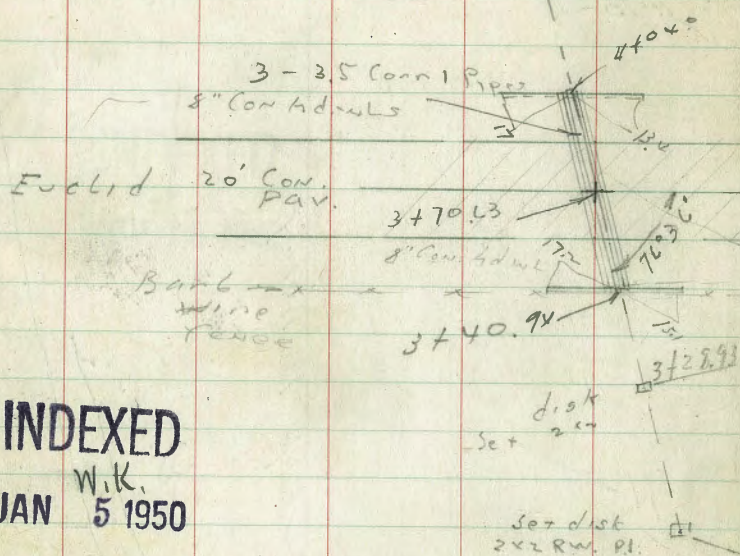 4+04.0
3 - 3.5 Conn 1 Pipes
8" Con Hdwls
17
13.4
Euclid
20' Con.
Pav.
3+70.63
76°36'
8" Con Hdwl
17.2
Barb
Wire
Fence
3+40.94
15.1
3+28.93
disk
Set
INDEXED
W.K.
JAN 5 1950
Set disk
2x2 RW. Pl.